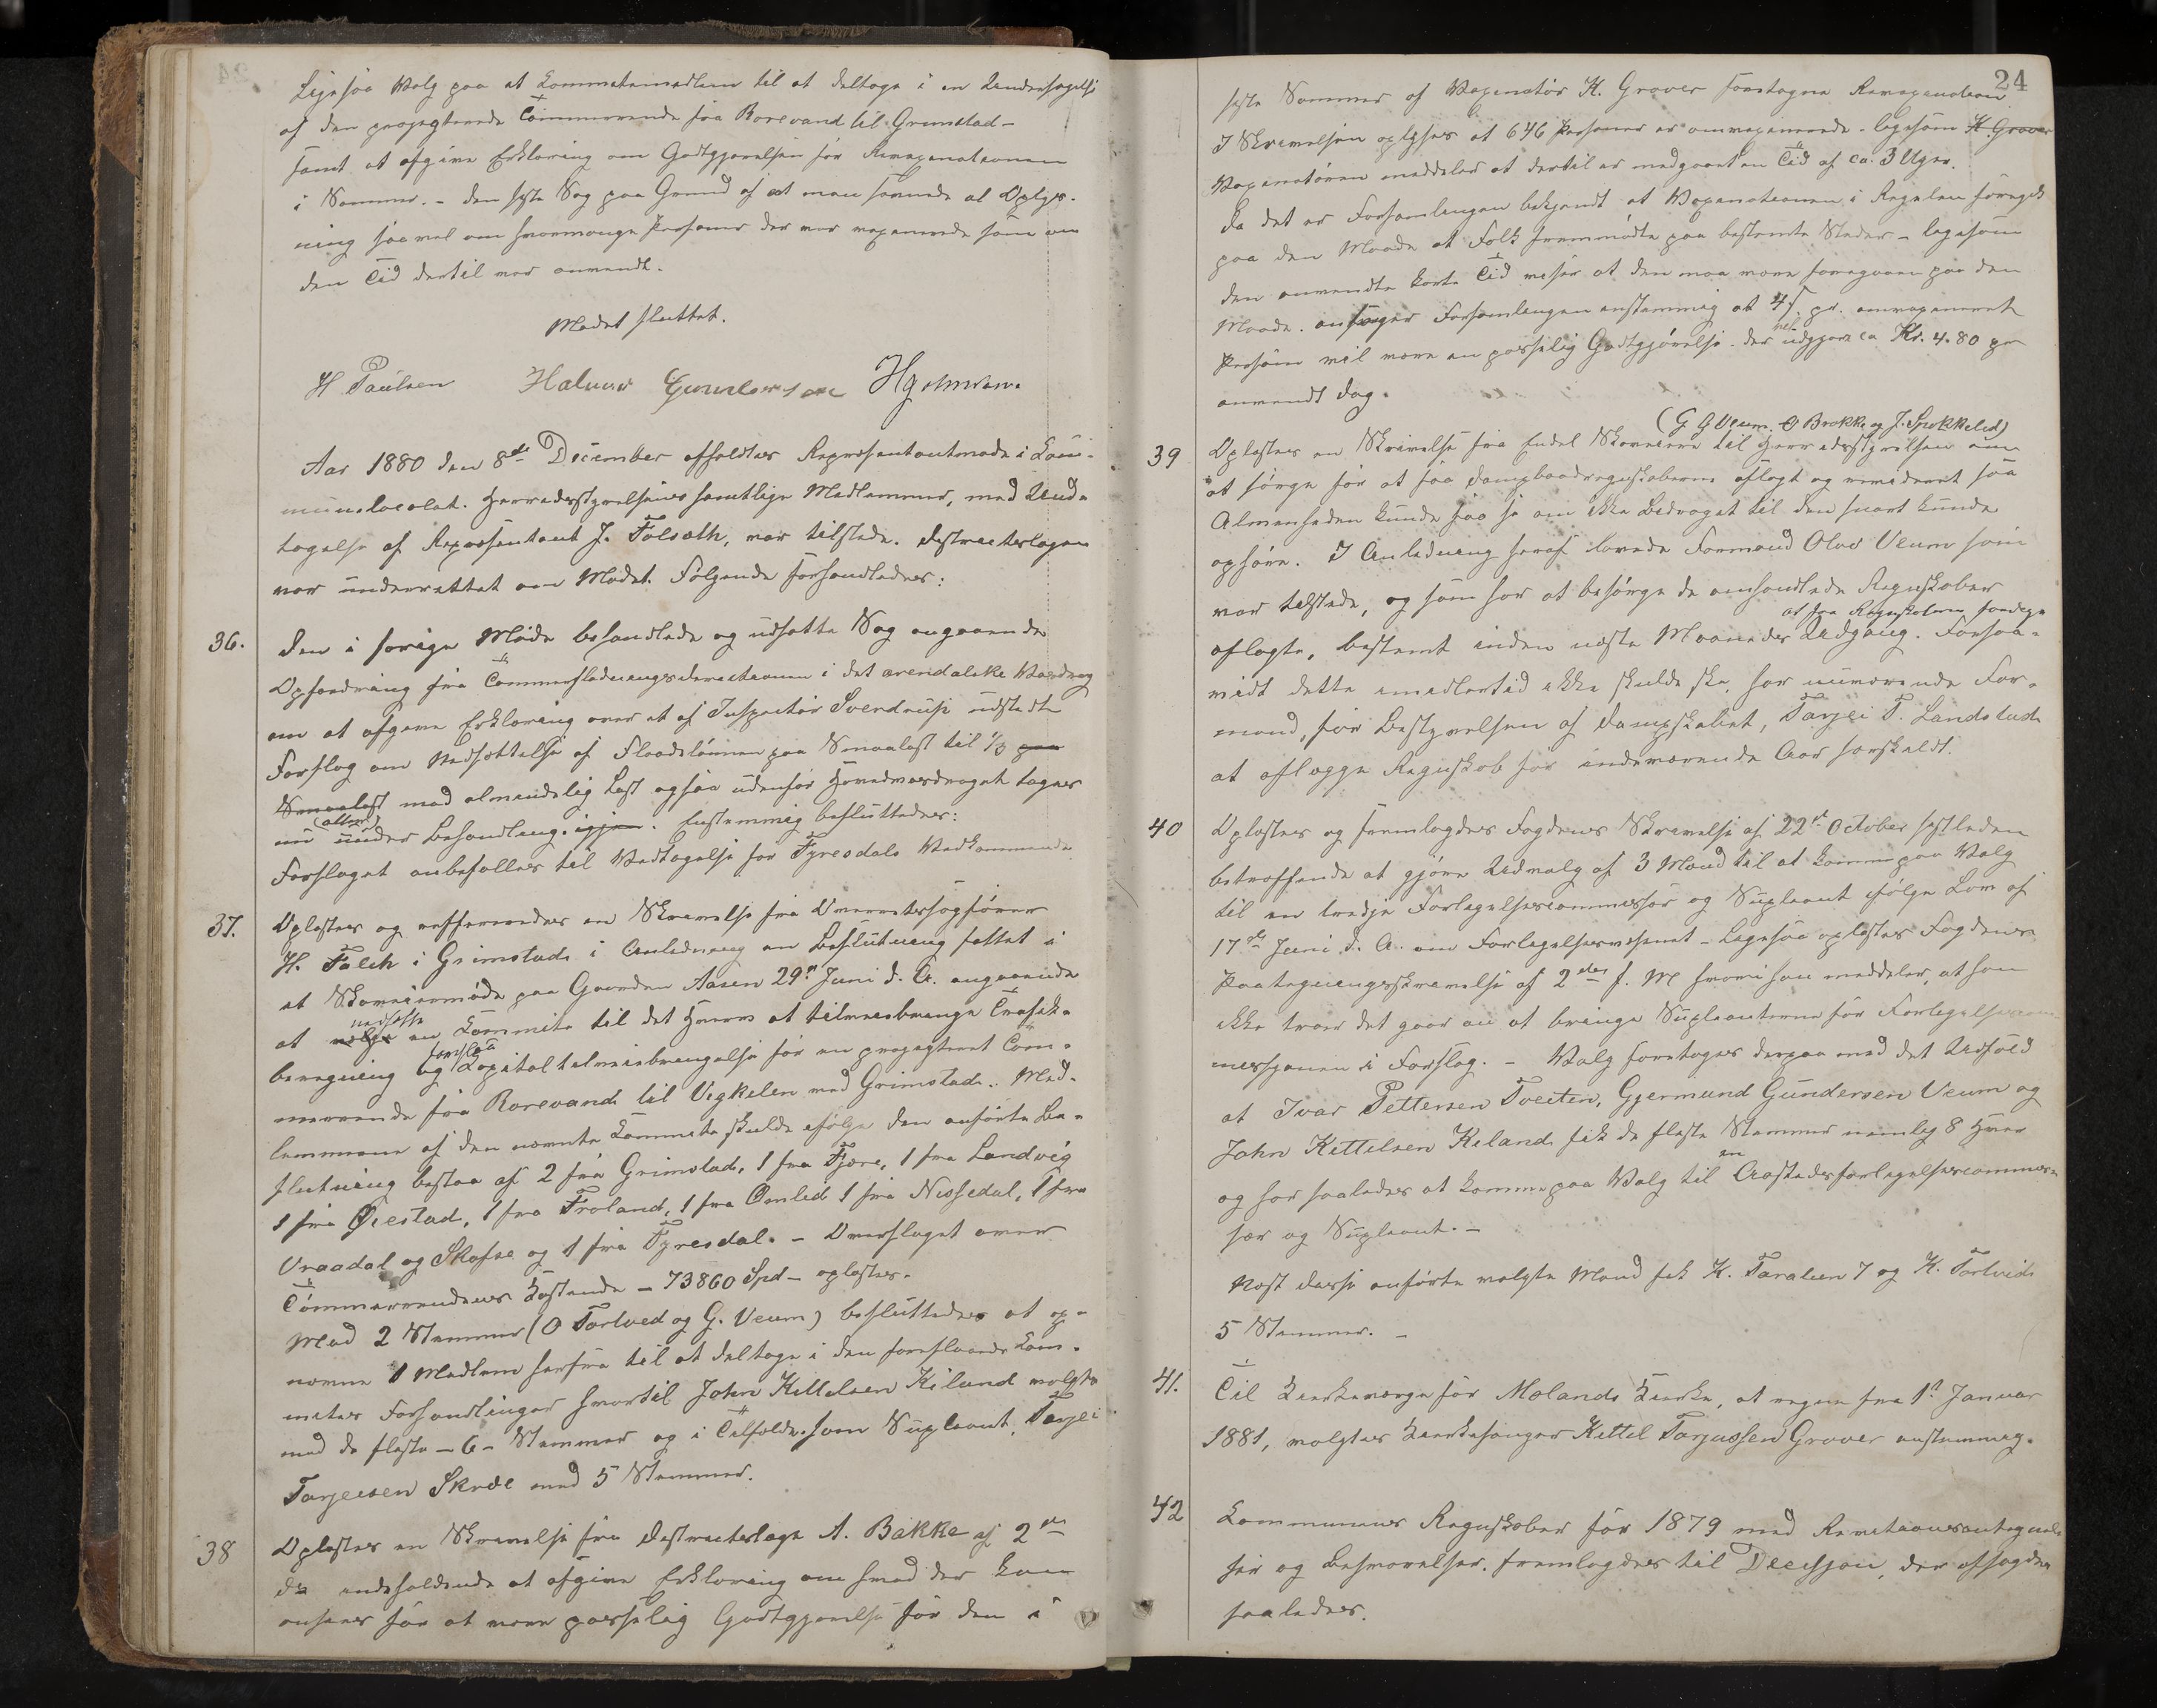 Ligesaa Valg paa et Kommitemedlem til at deltage i en Undersøgelse
af den projegterede Tømmerrende fra Rorevand til Grimstad –
samt at afgive Erklæring om Godtgjørelsen for Revaxinationen
i Sommer. – den siste Sag paa Grund af at man savnede al Oplys-
ning saavel om hvormange Personer der var vaxinerede som om
den Tid dertil var anvendt.
Mødet sluttet.
H Paulsen Halvor Gundersen
Aar 1880 den 8de December afholdtes Repræsentantmøde i Kom-
munelocalet. Herredsstyrelsens samtlige Medlemmer, med Und-
tagelse af Repræsentant J. Følsæth, var tilstede. Distrectslægen
var underrettet om Mødet. Følgende forhandledes:
36. Den i forrige Møde behandlede og udsatte Sag angaaende
Opfordring fra Tømmerfledningsdirectionen i det arendalske Vasdrag
om at afgive Erklæring over et af Inspectør Svendrup udstedte
Forslag om Nedsættelse af Flødslønnen paa Smaalast til 1/3 paa
Smaalast mod almindelig Last ogsaa udenfor Hovedvasdraget toges
nu (atter) under Behandling igjen. Enstemmig besluttedes:
Forslaget anbefales til Vedtagelse for Fyresdals Vedkommende
37. Oplæstes og refereredes en Skrivelse fra Overretssagfører
H. Falch i Grimstad i Anledning en Beslutning fattet i
et Skoveiermøde paa Gaarden Aasen 29de Juni d. A. angaaende
at vælge nedsætte en Kommite til det Hverv at tilveiebringe Trafik-
beregning og forslaa Kapitaltilveiebringelse for en projegteret Tøm-
merrende fra Rorevand til Vigkelen ved Grimstad. Med-
lemmerne af den nævnte Kommite skulde ifølge den anførte Be-
slutning bestaa af 2 fra Grimstad, 1 fra Fjære, 1 fra Landvig
1 fra Øiestad, 1 fra Froland, 1 fra Omlid 1 fra Nissedal, 1 fra
Vraadal og Skafse og 1 fra Fyresdal. – Overslaget over
Tømmerrendens Kostende – 73860 Spd – oplæstes.
Mod 2 Stemmer (O Tortved og G. Veum) besluttedes at op-
nævne 1 Medlem herfra til at deltage i den foreslaaede Kom-
mites Forhandlinger hvortil John Kittelsen Kiland valgtes
med de fleste – 6 – Stemmer og i Tilfælde som Supleant, Tarjei
Tarjeisen Skrde med 5 Stemmer.
38 Oplæstes en Skrivelse fra Distrectslæge A. Bakke af 2den
ds indeholdende at afgive Erklæring om hvad der kan
ansees for at være passelig Godtgjørelse for den i
24
siste Sommer af Vaxinatør K. Grover foretagne Revaxination.
I Skrivelsen oplyses at 646 Personer er omvaxinerede – ligesom K. Grover
Vaxinatøren meddeler at dertil er medgaaet en Tid af ca. 3 Uger.
Da det er Forsamlingen bekjendt at Vaxinationen i Regelen foregik
paa den Maade at Folk fremmødte paa bestemte Steder – ligesom
den anvendte korte Tid viser at den maa være foregaaen paa den
Maade. ansøger Forsamlingen enstemmig at 4 s. pr. omvaxineret
Person vil være en passelig Godtgjørelse. der vel udgjøre ca Kr. 4.80 pr
anvendt Dag.
39 Oplæstes en Skrivelse fra Endel Skoveiere (G G Veum. O Brokke og J. Spokkelid) til Herredsstyrelsen om
at sørge for at faa Dampbaadregnskaberne aflagt og revideret saa
Almenheden kunde faa se om ikke Bidraget til den snart kunde
ophøre. I Anledning heraf lovede Formand Olav Veum som
var tilstede, og som har at besørge de omhandlede Regnskaber
aflagte, bestemt inden næste Maaneds Udgang at faa Regnskaberne færdige. Forsaa-
vidt dette imedlertid ikke skulde ske, har nuværende For-
mand, for Bestyrelsen af Dampskibet, Tarjei T. Landstad
at aflægge Regnskab for indeværende Aar særskildt.
40 Oplæstes og fremlagdes Fogdens Skrivelse af 22de October sistleden
betræffende at gjøre Udvalg af 3 Mand til at komme paa Valg
til en tredje Forligelsescommissør og Supleant ifølge Lov af
17de Juni d. A. om Forligelsesvæsenet – Ligesaa oplæstes Fogdens
Paategningsskrivelse af 2den f. M hvori han meddeler, at han
ikke tror det gaar an at bringe Supleanterne for Forligelsescom-
missjonen i Forslag. – Valg foretoges derpaa med det Udfald
at Ivar Pettersen Tveiten, Gjermund Gundersen Veum og
John Kittilsen Kiland fik de fleste Stemmer nemlig 8 Hver
og har saaledes at komme paa Valg til en Trostedsforligelsescommis-
sær og Supleant. –
Næst disse anførte valgte Mænd fik K. Taraldsen 7 og K. Tortveid
5 Stemmer. –
41. Til Kirkeværge for Molands Kirke, at regne fra 1st Januar
1881, valgtes Kirkesanger Kittil Tarjussen Grover enstemmig.
42 Kommunens Regnskaber for 1879 med Revisionsantegnel-
ser og Besvarelser. fremlagdes til Decisjon, der afsagdes
saaledes.